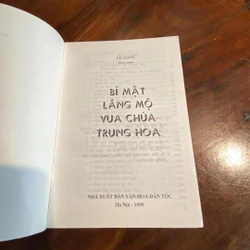 BÍ MẬT
LĂNG MỘ
VUA CHÚA
TRUNG HOA
NHÀ XUẤT BẢN VĂN HOÁ DÂN TỘC
Hà Nội - 1999